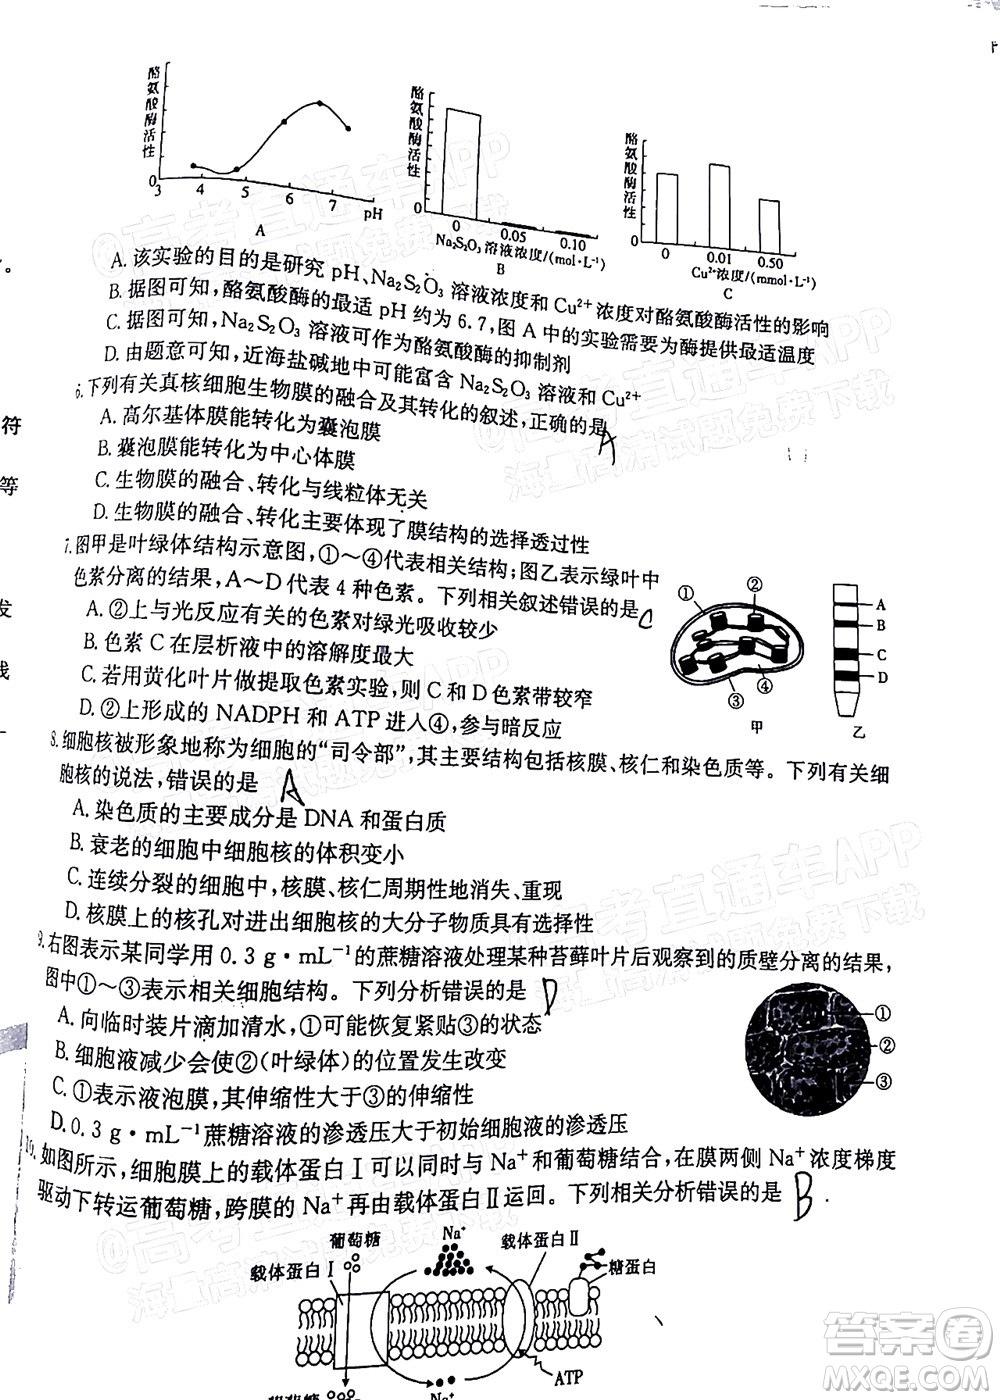 酪氨酸酶活性
0
3 4 5 6 7 pH
A
酪氨酸酶活性
0
0 0.05 0.10
Na₂S₂O₃溶液浓度/(mol·L⁻¹)
B
酪氨酸酶活性
0
0 0.01 0.50
Cu²⁺浓度/(mol·L⁻¹)
C
A. 该实验的目的是研究 pH、Na₂S₂O₃ 溶液浓度和 Cu²⁺ 浓度对酪氨酸酶活性的影响
B. 据图可知,酪氨酸酶的最适 pH 约为 6.7,图 A 中的实验需要为酶提供最适温度
C. 据图可知,Na₂S₂O₃ 溶液可作为酪氨酸酶的抑制剂
D. 由题意可知,近海盐碱地中可能富含 Na₂S₂O₃ 溶液和 Cu²⁺
6. 下列有关真核细胞生物膜的融合及其转化的叙述,正确的是 A
A. 高尔基体膜能转化为囊泡膜
B. 囊泡膜能转化为中心体膜
C. 生物膜的融合、转化与线粒体无关
D. 生物膜的融合、转化主要体现了膜结构的选择透过性
7. 图甲是叶绿体结构示意图,①~④代表相关结构;图乙表示绿叶中
色素分离的结果,A~D 代表 4 种色素。下列相关叙述错误的是 C
A. ②上与光反应有关的色素对绿光吸收较少
B. 色素 C 在层析液中的溶解度最大
C. 若用黄化叶片做提取色素实验,则 C 和 D 色素带较窄
D. ②上形成的 NADPH 和 ATP 进入④,参与暗反应
① ② ③ ④
甲
A
B
C
D
乙
8. 细胞核被形象地称为细胞的“司令部”,其主要结构包括核膜、核仁和染色质等。下列有关细
胞核的说法,错误的是 A
A. 染色质的主要成分是 DNA 和蛋白质
B. 衰老的细胞中细胞核的体积变小
C. 连续分裂的细胞中,核膜、核仁周期性地消失、重现
D. 核膜上的核孔对进出细胞核的大分子物质具有选择性
9. 右图表示某同学用 0.3 g·mL⁻¹ 的蔗糖溶液处理某种苔藓叶片后观察到的质壁分离的结果,
图中①~③表示相关细胞结构。下列分析错误的是 D
A. 向临时装片滴加清水,①可能恢复紧贴③的状态
B. 细胞液减少会使②(叶绿体)的位置发生改变
C. ①表示液泡膜,其伸缩性大于③的伸缩性
D. 0.3 g·mL⁻¹ 蔗糖溶液的渗透压大于初始细胞液的渗透压
①
②
③
10. 如图所示,细胞膜上的载体蛋白Ⅰ可以同时与 Na⁺ 和葡萄糖结合,在膜两侧 Na⁺ 浓度梯度
驱动下转运葡萄糖,跨膜的 Na⁺ 再由载体蛋白Ⅱ运回。下列相关分析错误的是 B .
葡萄糖 Na⁺ 载体蛋白Ⅱ
载体蛋白Ⅰ 糖蛋白
ATP
葡萄糖 Na⁺
符
等
发
线
@高考直通车APP
海量高清试题免费下载
@高考直通车APP
海量高清试题免费下载
@高考直通车APP
海量高清试题免费下载
@高考直通车APP
海量高清试题免费下载
答案圈
MXQE.COM